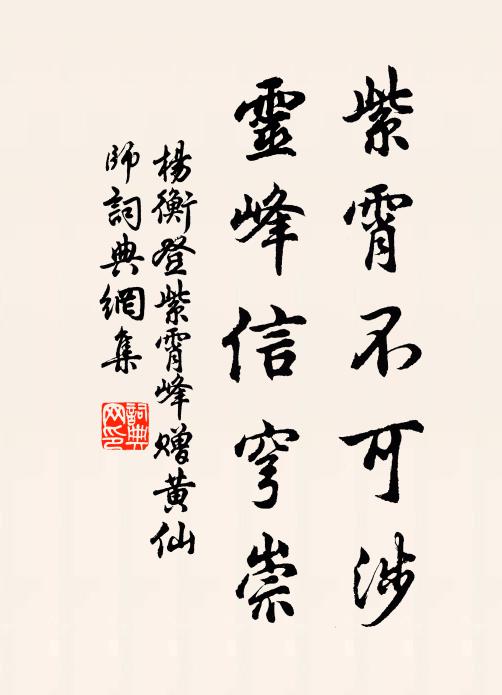 紫霄不可涉
靈峰信穹崇
楊衡登紫霄峰贈黃仙
師詞典網集
詞典
网印